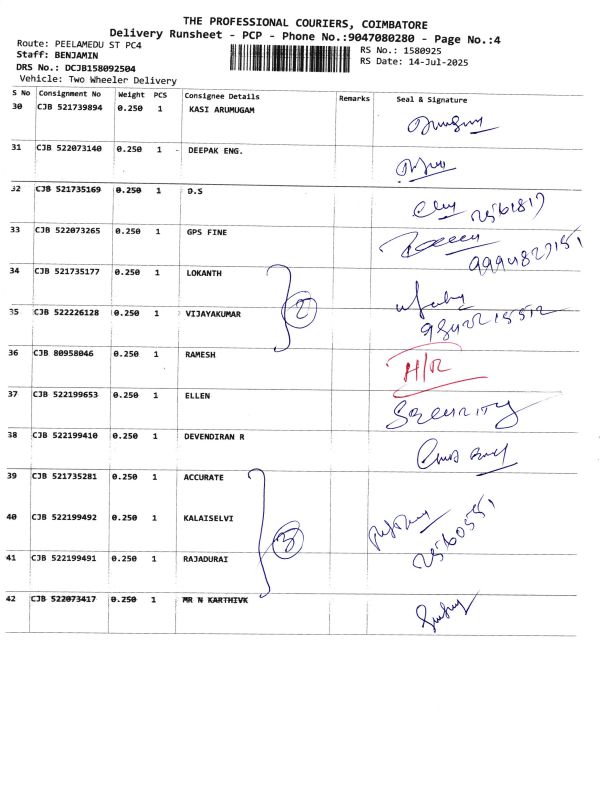 THE PROFESSIONAL COURIERS, COIMBATORE
Delivery Runsheet - PCP - Phone No.:9047080280 - Page No.:4
Route: PEELAMEDU ST PC4
Staff: BENJAMIN
DRS No.: DCJB158092504
Vehicle: Two Wheeler Delivery
RS No.: 1580925
RS Date: 14-Jul-2025
S No Consignment No Weight PCS Consignee Details Remarks Seal & Signature
30 CJB 521739894 0.250 1 KASI ARUMUGAM
31 CJB 522073140 0.250 1 DEEPAK ENG.
32 CJB 521735169 0.250 1 D.S
2561817
33 CJB 522073265 0.250 1 GPS FINE
9994827151
34 CJB 521735177 0.250 1 LOKANTH
2
35 CJB 522226128 0.250 1 VIJAYAKUMAR
36 CJB 80958046 0.250 1 RAMESH
H/R
37 CJB 522199653 0.250 1 ELLEN
SECURITY
38 CJB 522199410 0.250 1 DEVENDIRAN R
39 CJB 521735281 0.250 1 ACCURATE
40 CJB 522199492 0.250 1 KALAISELVI
3
2560551
41 CJB 522199491 0.250 1 RAJADURAI
42 CJB 522073417 0.250 1 MR N KARTHIVK